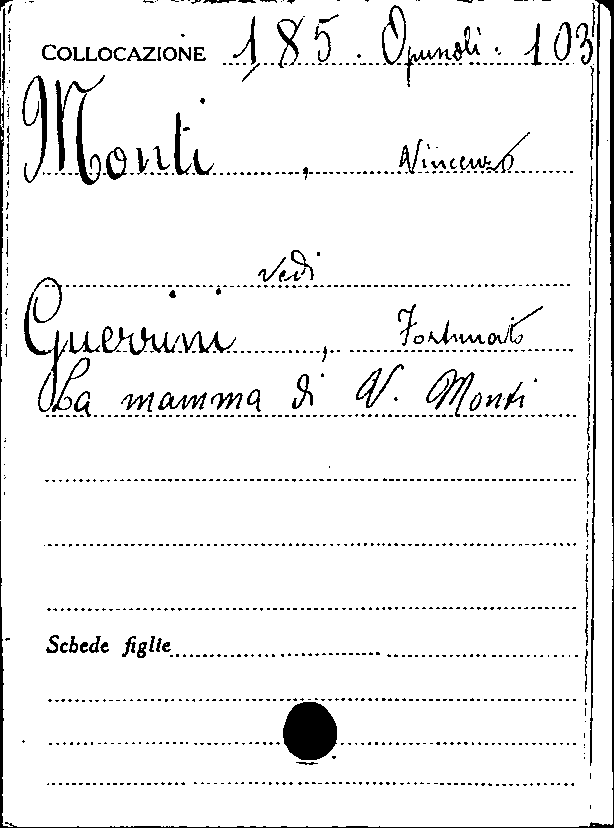 COLLOCAZIONE 185. Opuscoli. 103
Monti, Vincenzo
vedi
Guerrini, Fortunato
La mamma di V. Monti
Schede figlie